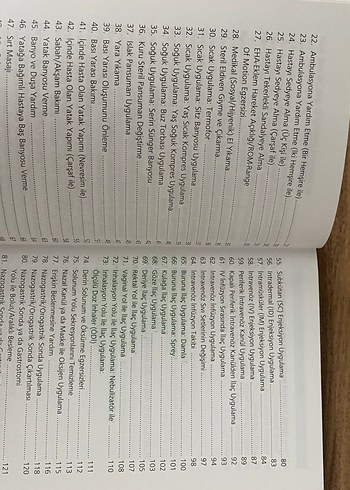 22. Ambulasyona Yardım Etme (Bir Hemşire ile)
23. Ambulasyona Yardım Etme (İki Hemşire ile)
24. Hastayı Sedyeye Alma (Üç Kişi ile)
25. Hastayı Sedyeye Alma (Çarşaf ile)
26. Hastayı Tekerlekli Sandalyeye Alma
27. EHA-Eklem Hareket Açıklığı/ROM-Range
Of Motion Egzersizi
28. Medikal (Sosyal/Hijyenik) El Yıkama
29. Steril Eldiven Giyme ve Çıkarma
30. Sıcak Uygulama: Termofor
31. Sıcak Uygulama: Oturma Banyosu Uygulama
32. Sıcak Uygulama: Yaş Sıcak Kompres Uygulama
33. Soğuk Uygulama: Yaş Soğuk Kompres Uygulama
34. Soğuk Uygulama: Buz Torbası Uygulama
35. Soğuk Uygulama: Serin Sünger Banyosu
36. Kuru Steril Pansuman Değiştirme
37. Islak Pansuman Uygulama
38. Yara Yıkama
39. Bası Yarası Oluşumunu Önleme
40. Bası Yarası Bakımı
41. İçinde Hasta Olan Yatak Yapımı (Nevresim ile)
42. İçinde Hasta Olan Yatak Yapımı (Çarşaf ile)
43. Sabah Bakımı
44. Yatak Banyosu Verme
45. Banyo ve Duşa Yardım
46. Yatağa Bağımlı Hastaya Baş Banyosu Verme
47. Sırt Masajı
55. Subkütan (SC) Enjeksiyon Uygulama 80
56. İntradermal (ID) Enjeksiyon Uygulama 83
57. İntramüsküler (IM) Enjeksiyon Uygulama 84
58. İntravenöz (IV) Enjeksiyon Uygulama 87
59. Periferik İntravenöz Kanül Uygulama 89
60. Kapalı Periferik İntravenöz Kanülden İlaç Uygulama 92
61. IV İnfüzyon Sırasında İlaç Uygulama 93
62. İntravenöz İnfüzyon Uygulama 94
63. İntravenöz Sıvı Setlerinin Değişimi 97
64. İntravenöz İnfüzyon Takibi 98
65. Buruna İlaç Uygulama: Damla 100
66. Buruna İlaç Uygulama: Sprey 101
67. Kulağa İlaç Uygulama 102
68. Göze İlaç Uygulama 103
69. Deriye İlaç Uygulama 105
70. Rektal Yol ile İlaç Uygulama 107
71. Vajinal Yol ile İlaç Uygulama 108
72. İnhalasyon Yolu ile İlaç Uygulama: Nebulizatör ile 110
73. İnhalasyon Yolu ile İlaç Uygulama:
Ölçülü Doz İnhaler (ÖDİ) 111
74. Derin Solunum ve Öksürme Egzersizleri 112
75. Solunum Yolu Sekresyonlarını Temizleme 113
76. Nazal Kanül ya da Maske ile Oksijen Uygulama 115
77. Erişkin Beslenmesine Yardım 116
78. Nazogastrik/Orogastrik Sonda Uygulama 118
79. Nazogastrik/Orogastrik Sonda Çıkartılması 120
80. Nazogastrik Sonda ya da Gastrostomi
Yolu ile Bolus/Aralıklı Besleme 121
81. Nazogastrik Sonda